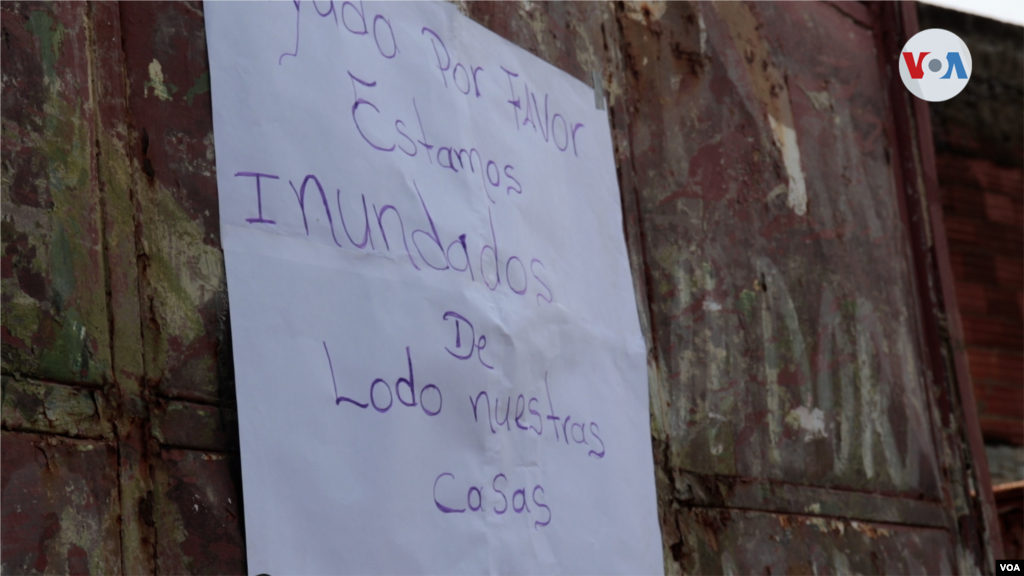 yudo Por FAVor
Estamos
Inundados
De
Lodo nuestras
casas
VOA
VOA